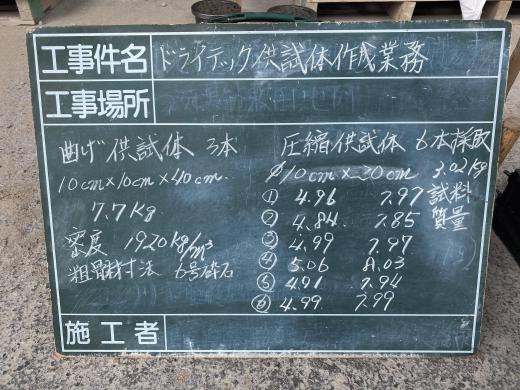 工事件名 ドライテック供試体作成業務
工事場所
曲げ供試体 3本
10cm×10cm×40cm
7.7kg
密度 1920kg/m³
粗骨材寸法 6号砕石
圧縮供試体 6本採取
φ10cm×30cm 3.02kg
① 4.96 7.97 試料
② 4.84 7.85 質量
③ 4.99 7.97
④ 5.06 8.03
⑤ 4.91 7.94
⑥ 4.99 7.99
施工者